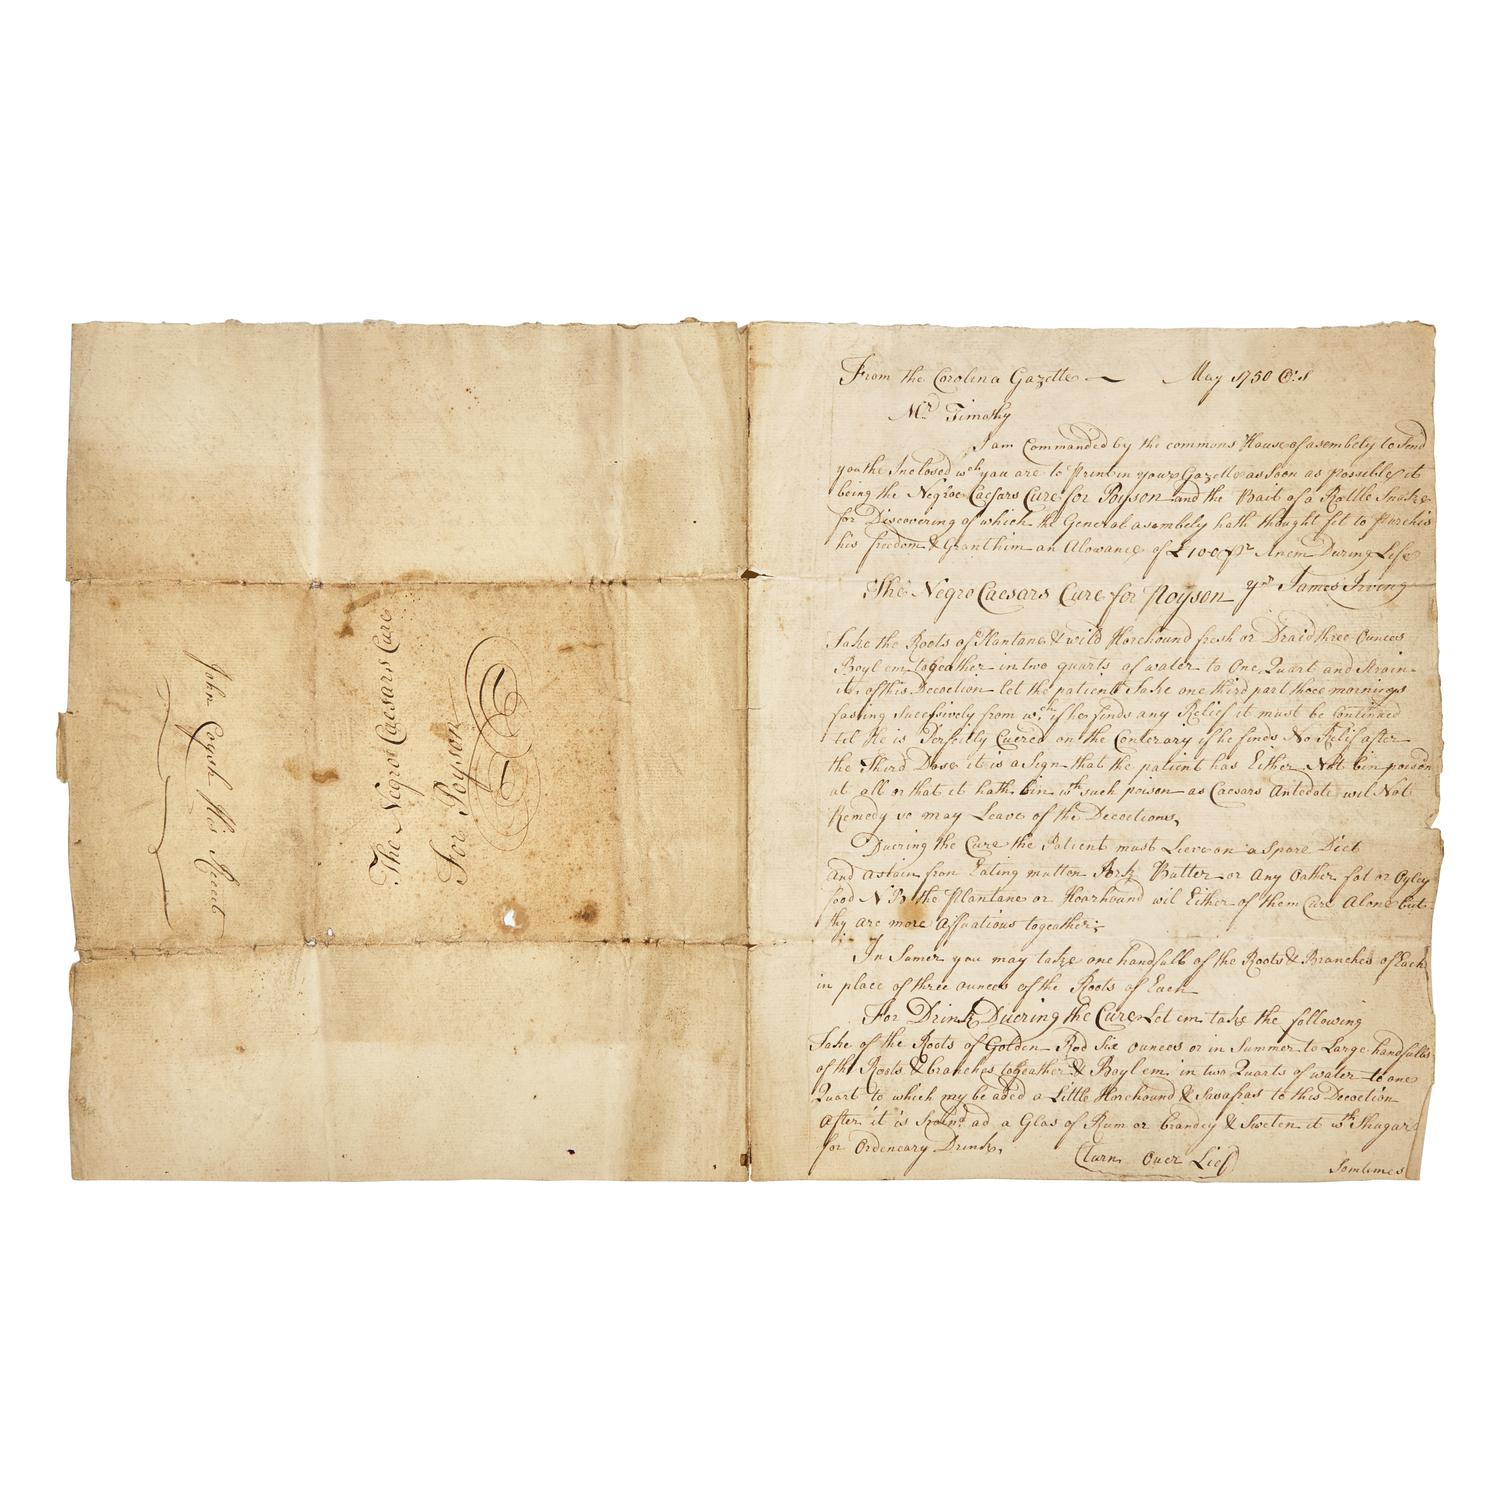 John Coyah His Receit
The Negro Caesars Cure
For Poyson
From the Corolina Gazette May 1750 O:S
Mr Timothy
I am Commanded by the commons House of asembely to Send
you the Inclosed wch you are to Print in your Gazette as Soon as possible it
being the Negroe Caesars Cure for Poyson and the Bait of a Rattle Snake
for Discovering of which the General asembely hath thought fit to Purchis
his freedom & Grant him an Alowance of £100 pr Anem During Life
The Negro Caesars Cure for Poyson yrs James Irving
Take the Roots of Plantane & wild Horehound fresh or Draid three Ounces
Boyl em togeather in two quarts of water to One Quart and Strain
it, of this Decoction let the patient Take one third part three mornings
fasting Sucessively from wch if he finds any Relief it must be Continued
til He is Perfectly Cuered on the Conterary if he finds No Relif after
the Third Dose it is a Sign that the patient has Either Not bin poison
at all or that it hath bin wth such poison as Caesars Antedote wil Not
Remedy so may Leave of the Decoctions,
Duering the Cure the Patient must Lieve on a Spare Diet
and astain from Eating mutton Pork Butter or Any Oather fat or Oyley
food N B the Plantane or Hoarhound wil Either of them Cure Alone but
thy are more Affuatious togeather;
In Sumer you may take one handfull of the Roots & Branches of Each
in place of three ounces of the Roots of Each
For Drink Duering the Cure Let em take the following
Take of the Roots of Golden Rod Six ounces or in Summer to Large handfulls
of the Roots & branches togeather & Boyl em in two Quarts of water to one
Quart to which my be aded a Little Horehound & Sasafras to this Decoction
After it is Straind ad a Glas of Rum or brandey & Sweten it wth Shugar
for Ordeneary Drink,
(turn Over Lief)
Somtimes